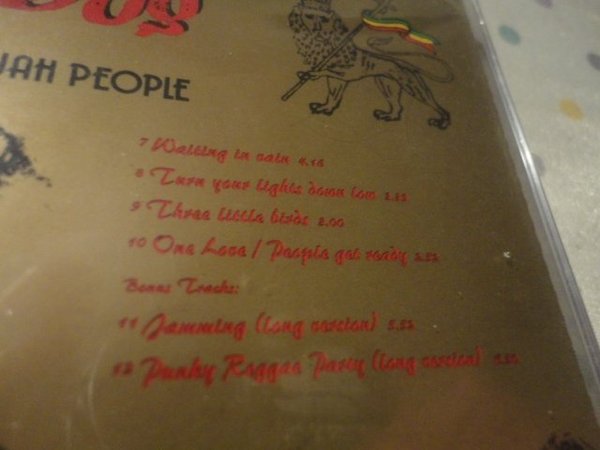 JAH PEOPLE
7 Waiting in vain 4.16
8 Turn your lights down low
9 Three little birds 3.00
10 One Love / People get ready
Bonus Tracks:
11 Jamming (long version)
12 Punky Reggae Party (long version)